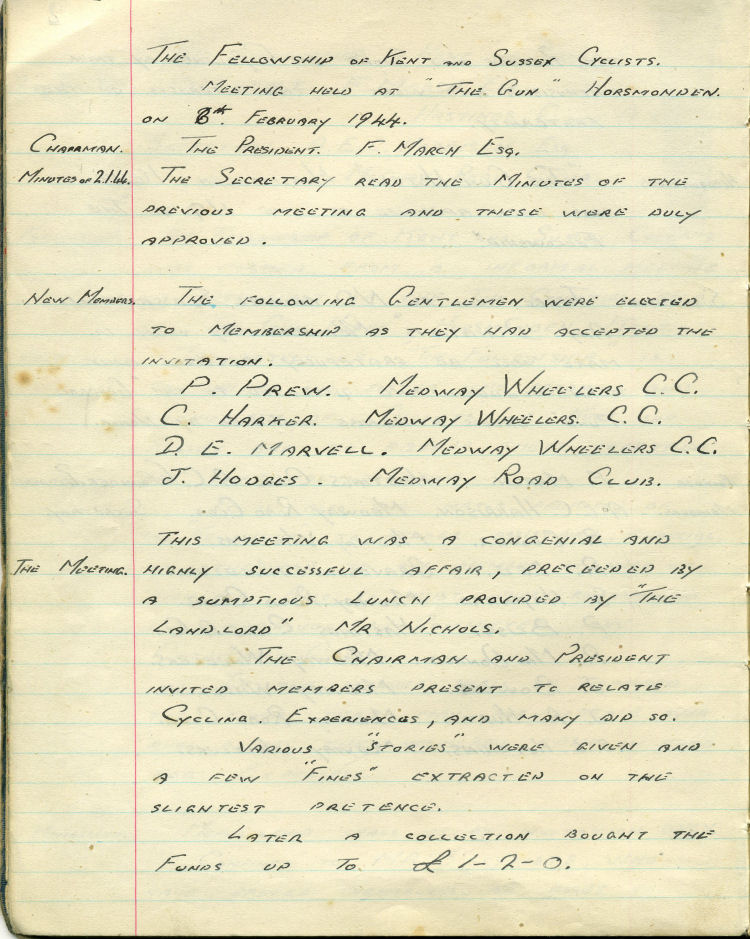 The Fellowship of Kent and Sussex Cyclists.
Meeting held at "The Gun" Horsmonden.
on 6th. February 1944.
Chairman. The President. F. March Esq.
Minutes of 2.1.44. The Secretary read the Minutes of the
previous meeting and these were duly
approved.
New Members. The following Gentlemen were elected
to Membership as they had accepted the
invitation.
P. Prew. Medway Wheelers C.C.
C. Harker. Medway Wheelers. C.C.
D. E. Marvell. Medway Wheelers C.C.
J. Hodges. Medway Road Club.
This meeting was a congenial and
The Meeting. highly successful affair, preceeded by
a sumptious Lunch provided by "The
Landlord" Mr Nichols.
The Chairman and President
invited members present to relate
Cycling. Experiences, and many did so.
Various "stories" were given and
a few "Fines" extracted on the
slightest pretence.
Later a collection bought the
Funds up to £1-2-0.